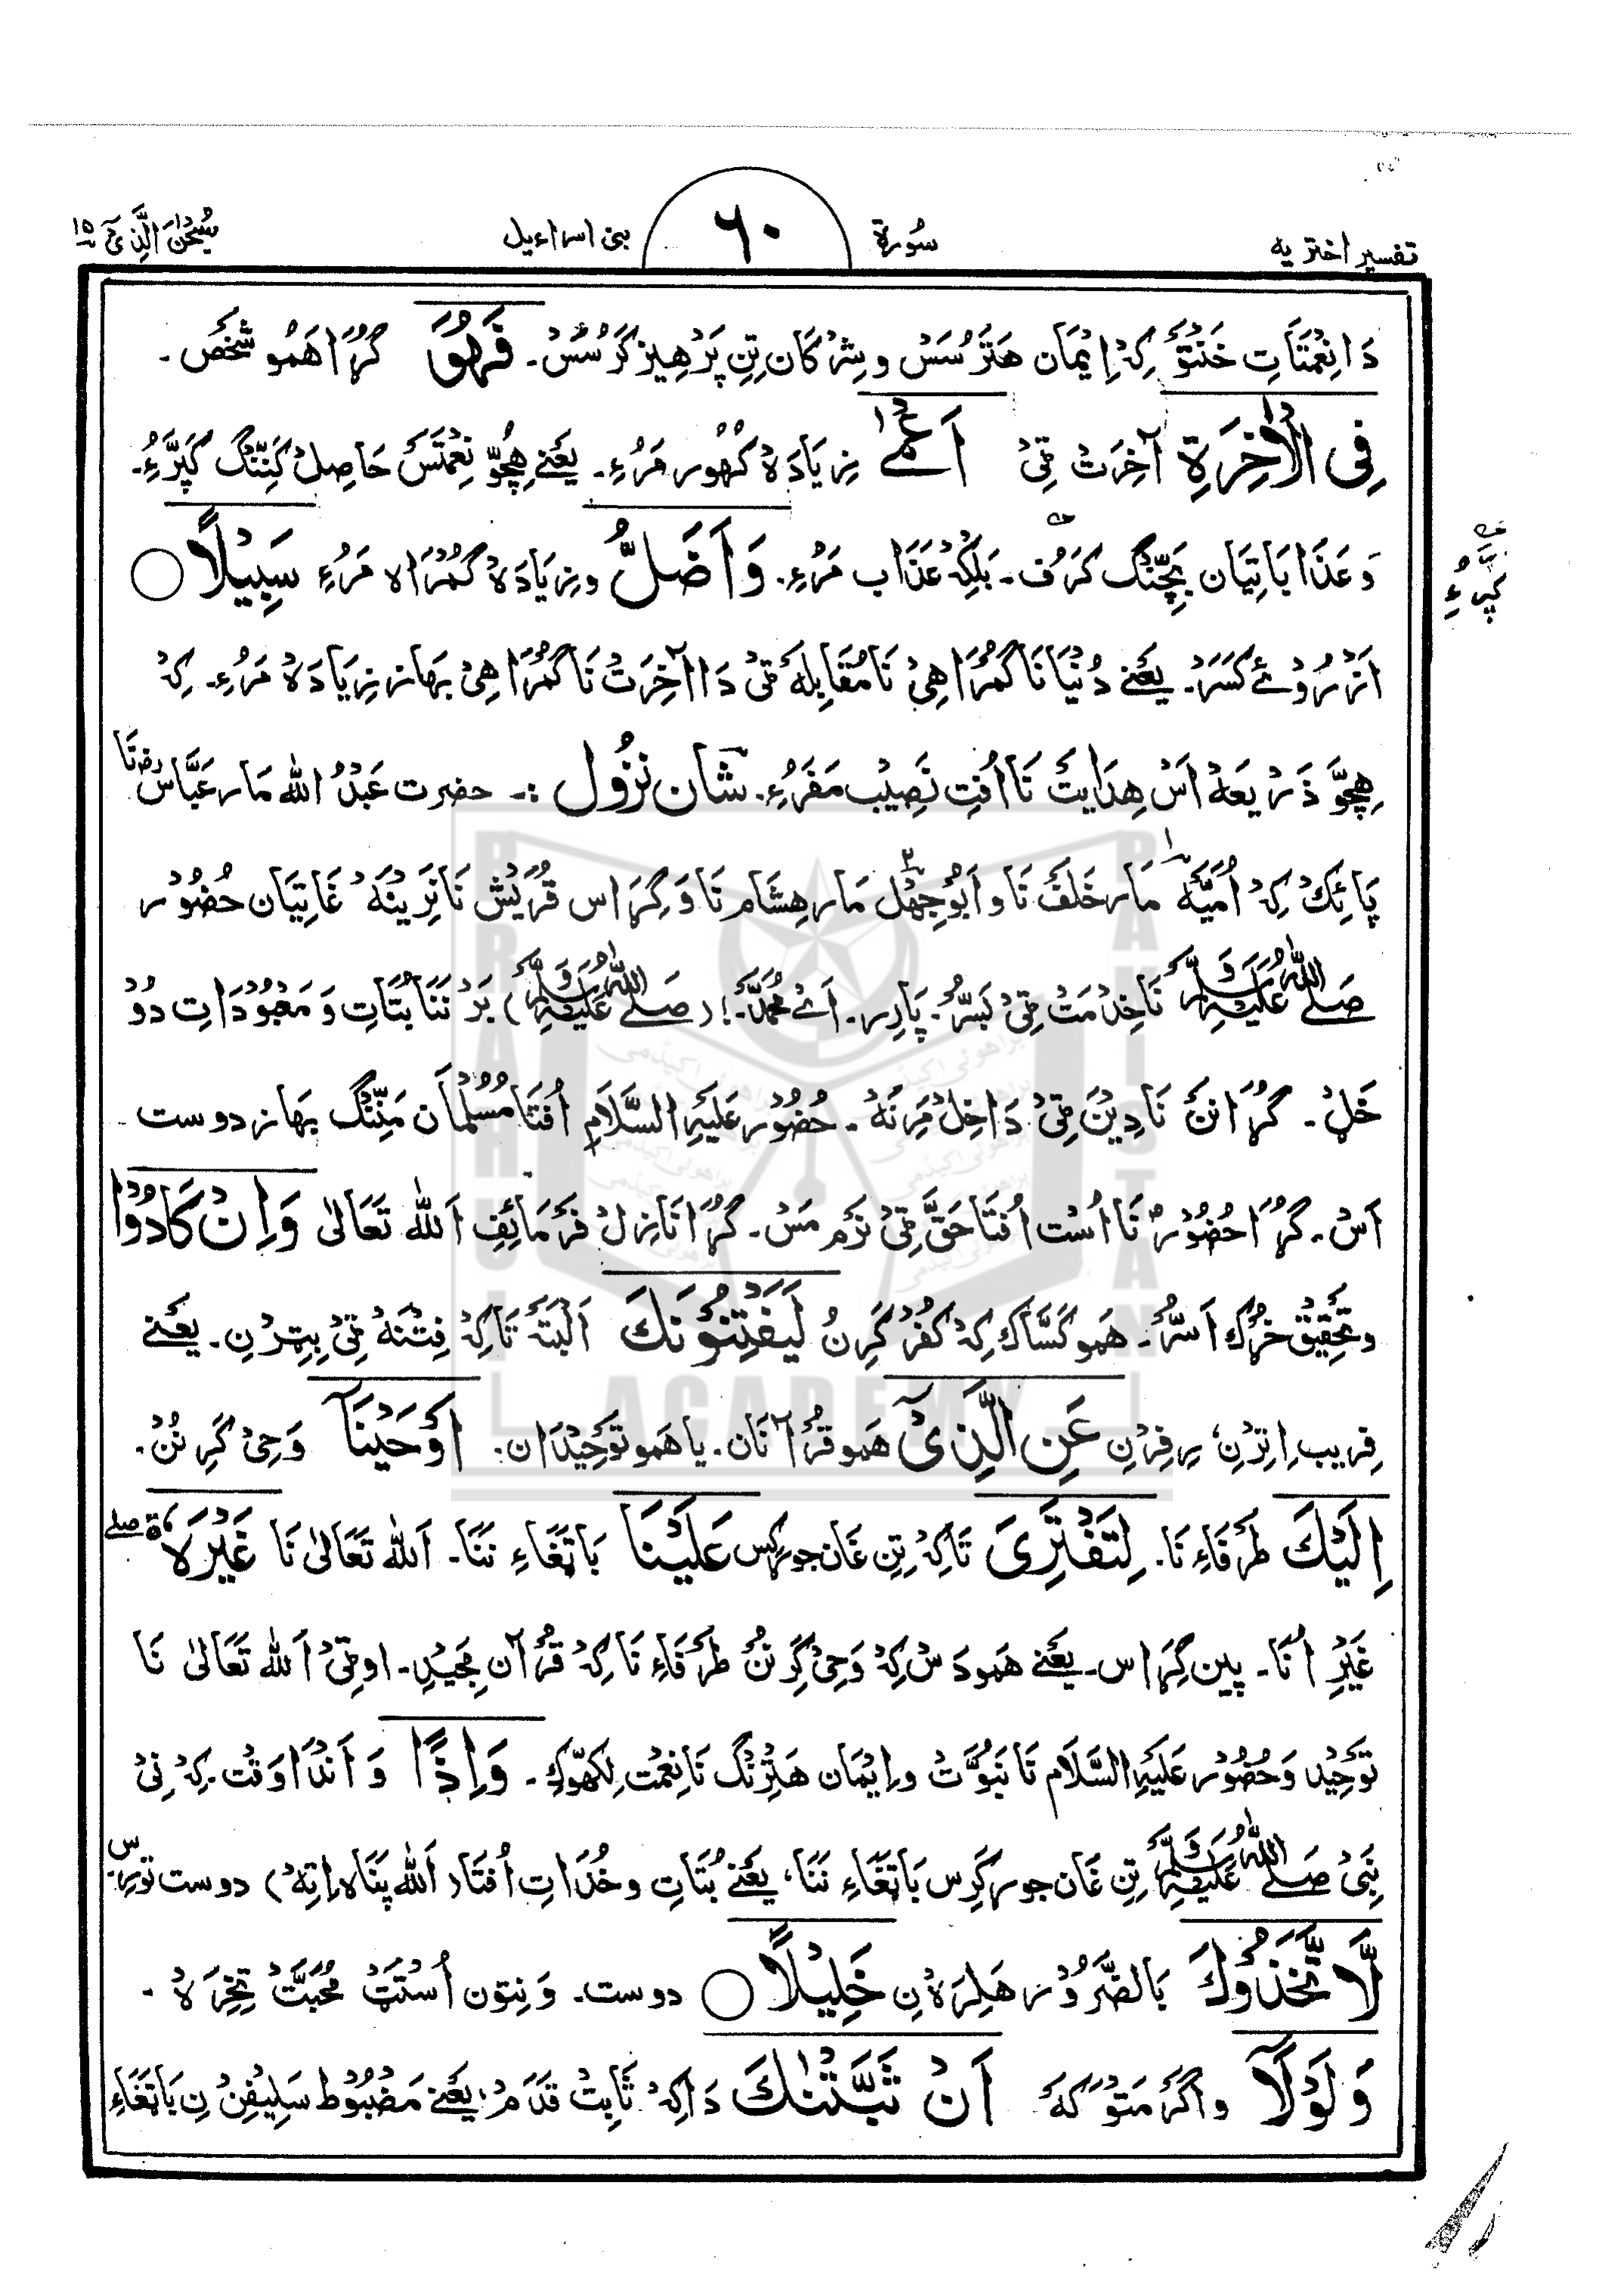 تفسیر اختریہ
سُورۃ
۶۰
بنی اسراءیل
سُبْحٰنَ الَّذِیْ ۱۵
دَا نِعْمَتَاتِ خَنْتَوْ کِہْ اِیْمَان هَتَرْسُسْ و شِرْکَان تِنِ پَرْهِیز کَرْسُسْ۔ فَهُوَ گُڑَا هَمُو شَخَص ۔
فِی الْاٰخِرَةِ آخِرَتْ ٹِیْ اَعْمٰی زِیَادَہ کُھُور مَرُءِ۔ یَعْنے هِچُّو نِعْمَتَسْ حَاصِلْ کَنِّنْگ کَپَرُءِ۔
وَ عَذَابَاتِیَان بَچِّنْگ کَرُف ۔ بَلْکِہْ عَذَاب مَرُءِ۔ وَاَضَلُّ و زِیَادَہْ گُمْرَاہ مَرُءِ سَبِیْلًا ○
کَپَرُءِ
اَزْ رُوْئے کَسَرَ۔ یَعْنے دُنْیَا نَا گُمْرَاهِیْ نَا مُقَابِلَہ ٹِیْ دَا آخِرَتْ نَا گُمْرَاهِیْ بَهَاز زِیَادَہْ مَرُءِ۔ کِہْ
هِچُّو ذَرِیْعَہْ اَسْ هِدَایَتْ نَا اُفْتِ نَصِیْب مَفَرُءِ۔ شَانِ نزُول :۔ حضرت عَبْدُ اللّٰه مَار عَبَّاس رضہ نَا
پَائِکْ کِہْ اُمَیَّہ مَار خَلَفْ نَا و اَبُو جِهْل مَار هِشَام نَا وَ گِڑَاس قُرَیْش نَا نَرِیْنَہْ غَاتِیَان حُضُوْر
صَلَّے اللّٰهُ عَلَیْہِ وَسَلَّمَ نَا خِدْمَتْ ٹِیْ بَسُّرْ۔ پَارِر۔ اَےْ مُحَمَّدْ! (صَلَّے اللّٰهُ عَلَیْہِ وَسَلَّمَ) بَرْ نَنَا بُتَاتِ وَ مَعْبُوْدَاتِ دُوْ
خَلْ ۔ گُڑَا نَنْ نَا دِیْن ٹِیْ دَاخِلْ مَرِنَہْ ۔ حُضُوْر عَلَیْہِ السَّلَامِ اُفْتَا مُسُلْمَان مَنِّنْگ بَهَاز دوست
اَسْ۔ گُڑَا حُضُوْر نَا اُسْت اُفْتَا حَقَّ ٹِیْ نَرْم مَسْ۔ گُڑَا نَازِلْ فَرْمَائِفِ اَللّٰه تَعَالٰی وَاِنْ کَادُوْا
و تَحْقِیْق خُرُک اَسُّرْ۔ هَمو کَسَّاک کِہْ کُفْرْ کَرِنُ لَیَفْتِنُوْنَکَ اَلْبَتَہْ تَاکِہْ فِتْنَہْ ٹِیْ بِتِرْنِ۔ یَعْنے
فِریب اِتِرْنِ، رِفِرْنِ عَنِ الَّذِیْ هَمو قُرْآنَان۔ یا هَمو تَوْحِیْدَان۔ اَوْحَیْنَآ وَحِیْ کَرِنُنْ۔
اِلَیْکَ طَرَفَاءِ نَا۔ لِتَفْتَرِیَ تَاکِہْ تِنِ غَان جوڑ کَسْ عَلَیْنَا بَاتِغَاءِ نَنَا۔ اَللّٰه تَعَالٰی نَا غَیْرَہٗ صلے
غَیْرِ اُنَا۔ پِین گِڑَاس۔ یَعْنے هَمو دَسْ کِہْ وَحِیْ کَرِنُنْ طَرَفَاءِ نَا کِہْ قُرْآن مَجِیْدِ۔ او ٹِیْ اَللّٰه تَعَالٰی نَا
تَوْحِیْد وَ حُضُوْر عَلَیْہِ السَّلَام نَا نَبُوَّتْ و اِیْمَان هَتِنْگ نَا نِعْمَت لِکھّوکِ ۔ وَاِذًا وَ اَنْدَا وَقْت کِہْ نِیْ
نَبِیْ صَلَّے اللّٰهُ عَلَیْہِ وَسَلَّمَ تِنِ غَان جوڑ کَرِس بَاتِغَاءِ نَنَا، یَعْنے بُتَاتِ و خُدَاتِ اُفْتَا (اَللّٰه پَنَاہ اِتِہْ) دوست توِرس
لَّاتَّخَذُوْکَ بَالضَّرُوْر هَلِرَہ نِ خَلِیْلًا ○ دوست۔ وَ نِتون اُسْتَتِ مُحَبَّتْ تِخِرَہْ ۔
وَلَوْلَآ و اگَرْ مَتَوْکَہْ اَنْ ثَبَّتْنٰکَ دَا کِہْ ثَابِتْ قَدَمْ، یَعْنے مَضْبُوْط سَلِیْفِنْ نِ بَاتِغَاءِ
BRAHUI
ACADEMY
PAKISTAN
براهوئی اکیڈمی